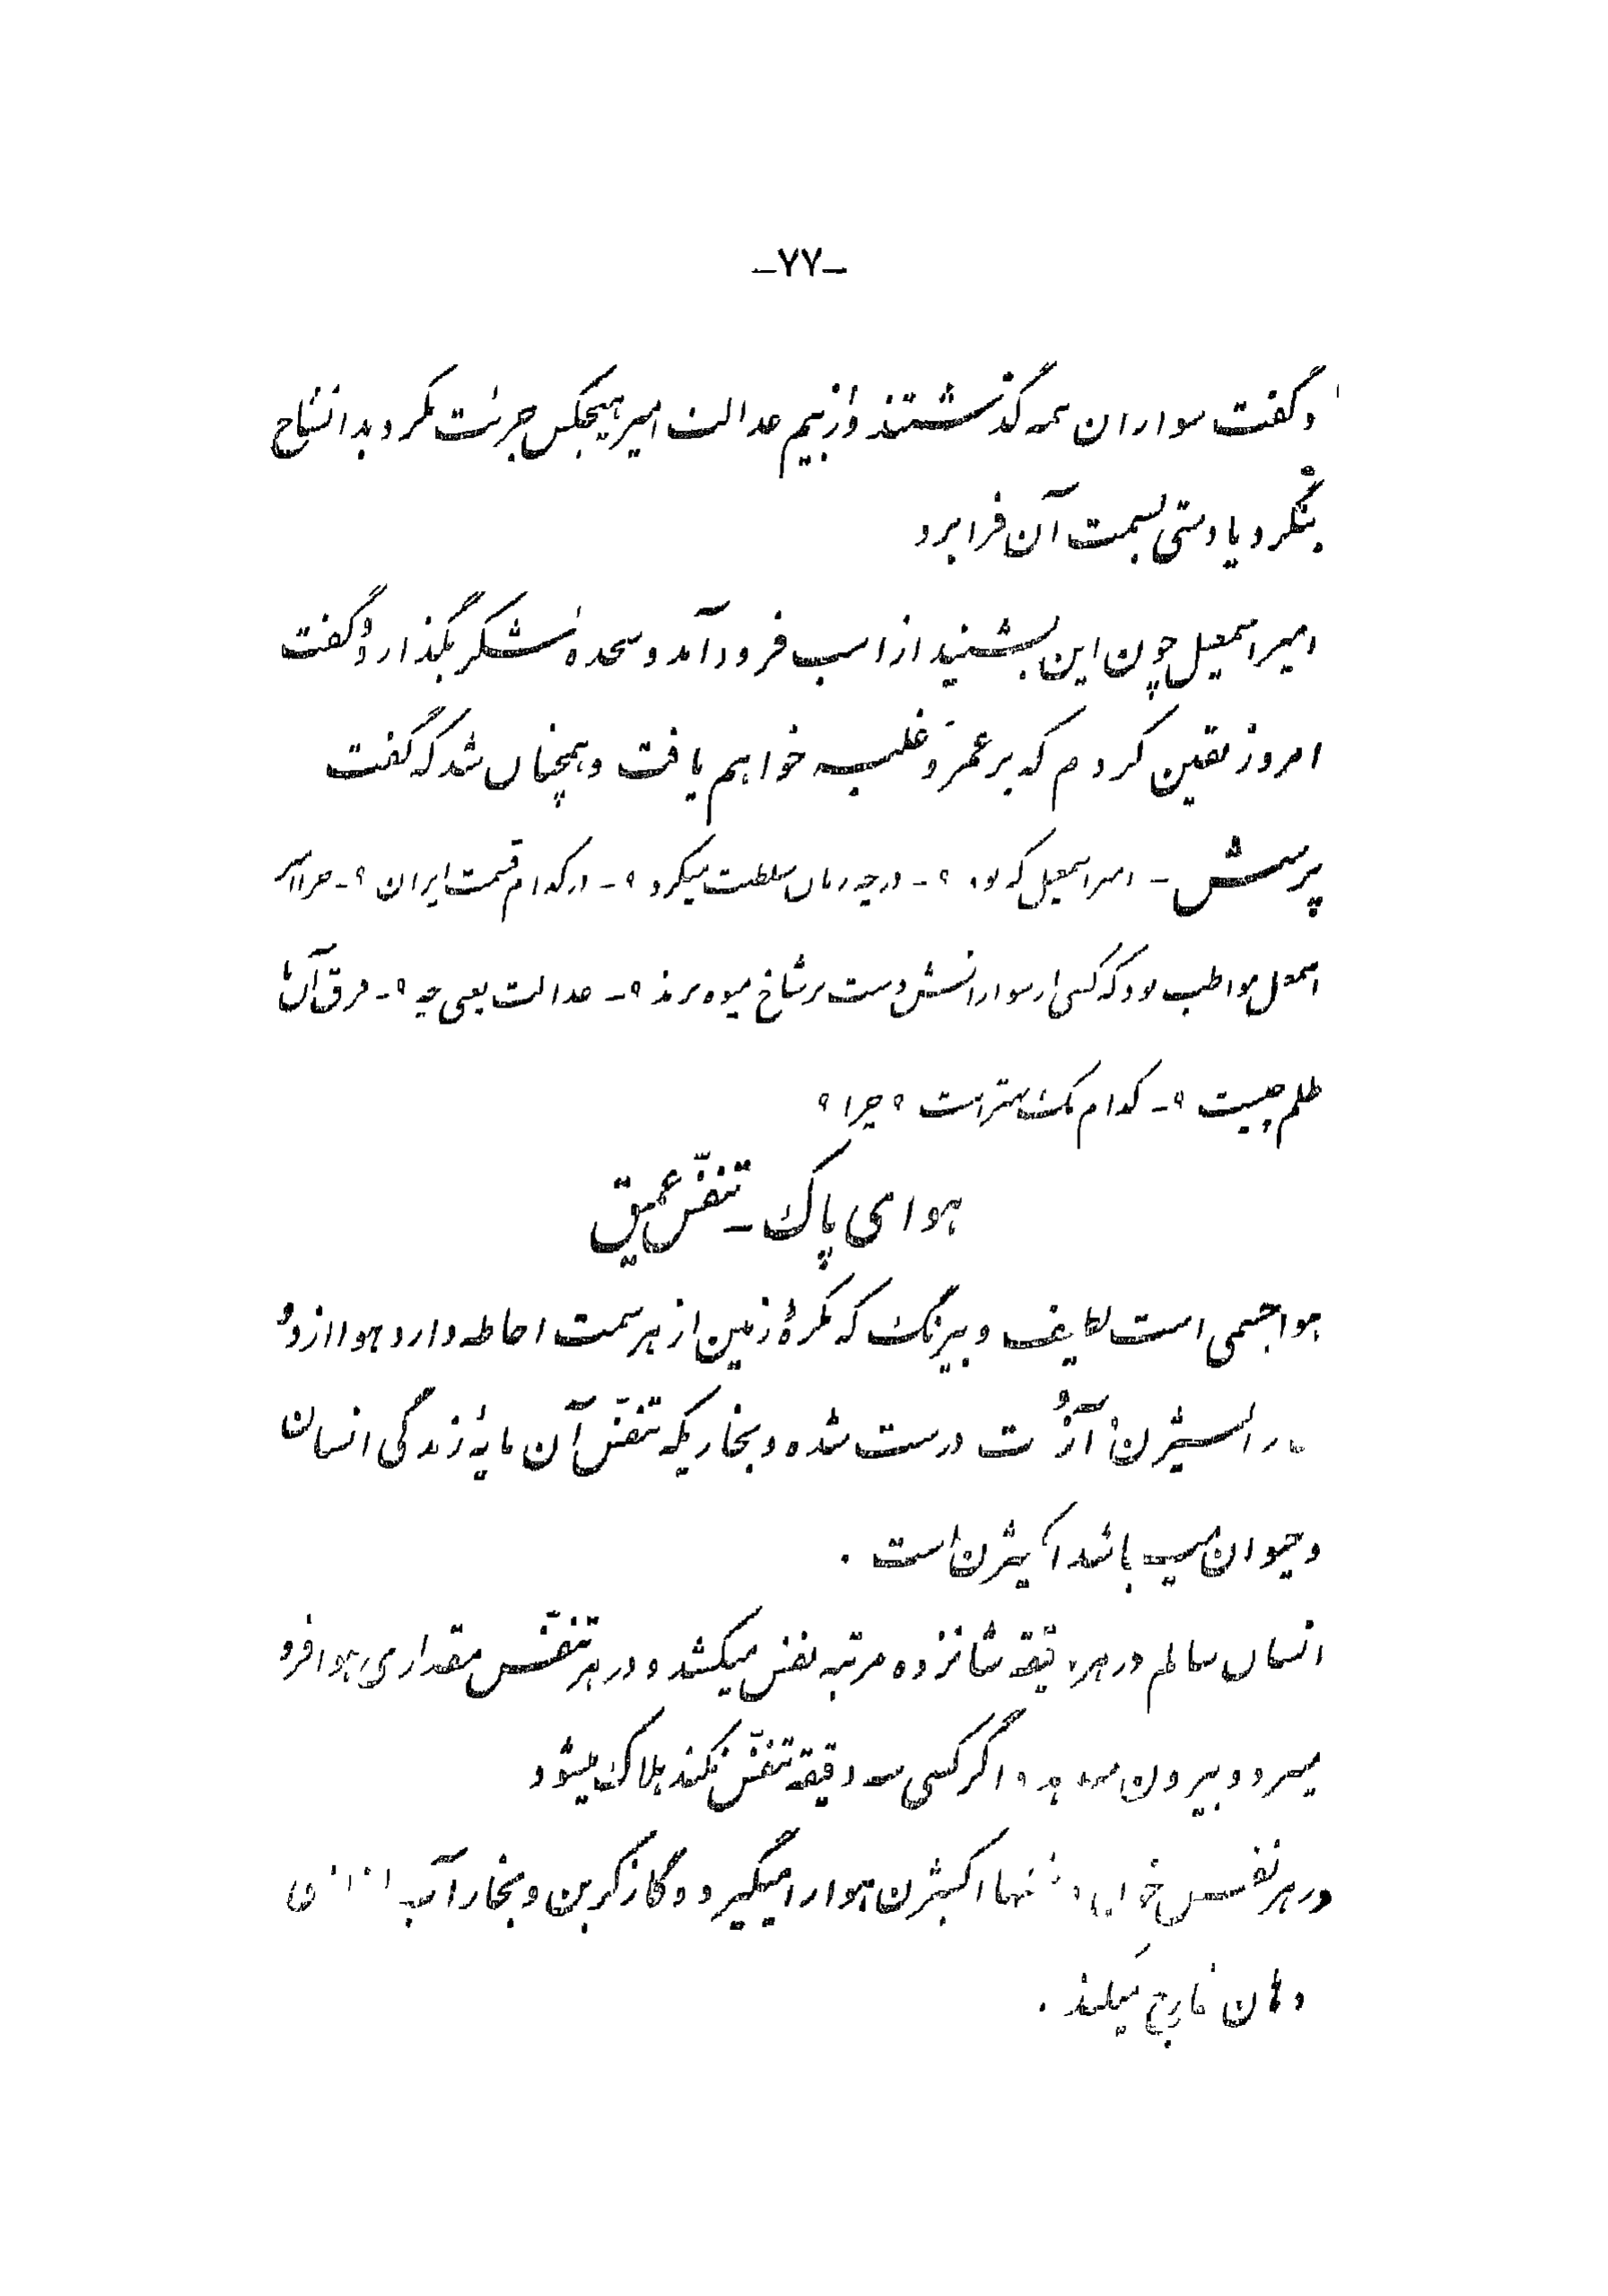 -۷۷-
و گفت سواران همه گذشتند و از بیم عدالت امیر هیچکس جرئت نکرد بدان شاخ
بنگرد یا دستی بسمت آن فرا برد
امیر اسمعیل چون این بشنید از اسب فرود آمد و سجدهٔ شکر بگذارد و گفت
امروز یقین کردم که بر عمرو غلبه خواهم یافت و همچنان شد که گفت
پرسش - امیر اسمعیل که بود ؟ - در چه زمان سلطنت میکرد ؟ - در کدام قسمت ایران ؟ - چرا امیر
اسمعیل مواظب بود که کسی از سوارانش دست بر شاخ میوه نزند ؟ - عدالت یعنی چه ؟ - فرق آن با
ظلم چیست ؟ - کدام یک بهتر است ؟ چرا ؟
هوای پاک - تنفّس عمیق
هوا جسمی است لطیف و بیرنگ که بکرهٔ زمین از هر سمت احاطه دارد هوا از دو
اکسیژن و آزُت درست شده و بخاریکه تنفّس آن مایهٔ زندگی انسان
و حیوان میباشد اکسیژن است .
انسان سالم در هر دقیقه شانزده مرتبه نفس میکشد و در هر تنفّس مقداری هوا فرو
میبرد و بیرون میدهد و اگر کسی سه دقیقه تنفّس نکند هلاک میشود
در هر نفس خون تنها اکسیژن هوا را میگیرد و گاز کربن و بخار آب از
دهان خارج میکند .